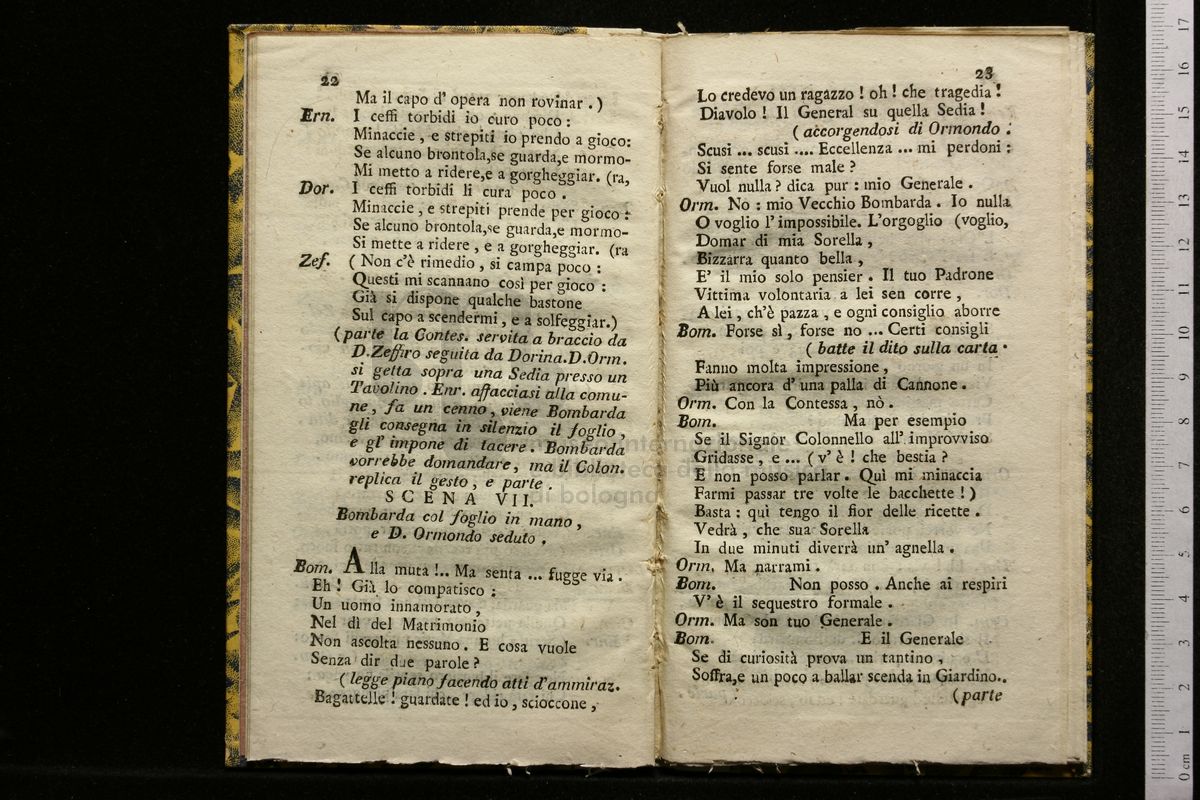 22
Ma il capo d' opera non rovinar .)
Ern. I ceffi torbidi io curo poco :
Minaccie , e strepiti io prendo a gioco:
Se alcuno brontola,se guarda,e mormo-
Mi metto a ridere,e a gorgheggiar. (ra,
Dor. I ceffi torbidi li cura poco .
Minaccie , e strepiti prende per gioco :
Se alcuno brontola,se guarda,e mormo-
Si mette a ridere , e a gorgheggiar. (ra
Zef. ( Non c'è rimedio , si campa poco :
Questi mi scannano così per gioco :
Già si dispone qualche bastone
Sul capo a scendermi , e a solfeggiar.)
(parte la Contes. servita a braccio da
D.Zeffiro seguita da Dorina.D.Orm.
si getta sopra una Sedia presso un
Tavolino . Enr. affacciasi alla comu-
ne , fa un cenno , viene Bombarda
gli consegna in silenzio il foglio ,
e gl' impone di tacere . Bombarda
vorrebbe domandare , ma il Colon.
replica il gesto , e parte .
SCENA VII.
Bombarda col foglio in mano ,
e D. Ormondo seduto .
Bom. Alla muta !.. Ma senta ... fugge via .
Eh ! Già lo compatisco :
Un uomo innamorato ,
Nel dì del Matrimonio
Non ascolta nessuno . E cosa vuole
Senza dir due parole ?
( legge piano facendo atti d'ammiraz.
Bagattelle ! guardate ! ed io , scioccone ,
23
Lo credevo un ragazzo ! oh ! che tragedia !
Diavolo ! Il General su quella Sedia !
( accorgendosi di Ormondo .
Scusi ... scusi .... Eccellenza ... mi perdoni :
Si sente forse male ?
Vuol nulla ? dica pur : mio Generale .
Orm. No : mio Vecchio Bombarda . Io nulla
O voglio l' impossibile. L'orgoglio (voglio,
Domar di mia Sorella ,
Bizzarra quanto bella ,
E' il mio solo pensier . Il tuo Padrone
Vittima volontaria a lei sen corre ,
A lei , ch'è pazza , e ogni consiglio aborre
Bom. Forse sì , forse no ... Certi consigli
( batte il dito sulla carta .
Fanno molta impressione ,
Più ancora d' una palla di Cannone .
Orm. Con la Contessa , nò .
Bom. Ma per esempio
Se il Signor Colonnello all' improvviso
Gridasse , e ... ( v' è ! che bestia ?
E non posso parlar . Quì mi minaccia
Farmi passar tre volte le bacchette ! )
Basta : quì tengo il fior delle ricette .
Vedrà , che sua Sorella
In due minuti diverrà un' agnella .
Orm. Ma narrami .
Bom. Non posso . Anche ai respiri
V' è il sequestro formale .
Orm. Ma son tuo Generale .
Bom. E il Generale
Se di curiosità prova un tantino ,
Soffra,e un poco a ballar scenda in Giardino..
(parte
di bologna
0 cm 1 2 3 4 5 6 7 8 9 10 11 12 13 14 15 16 17